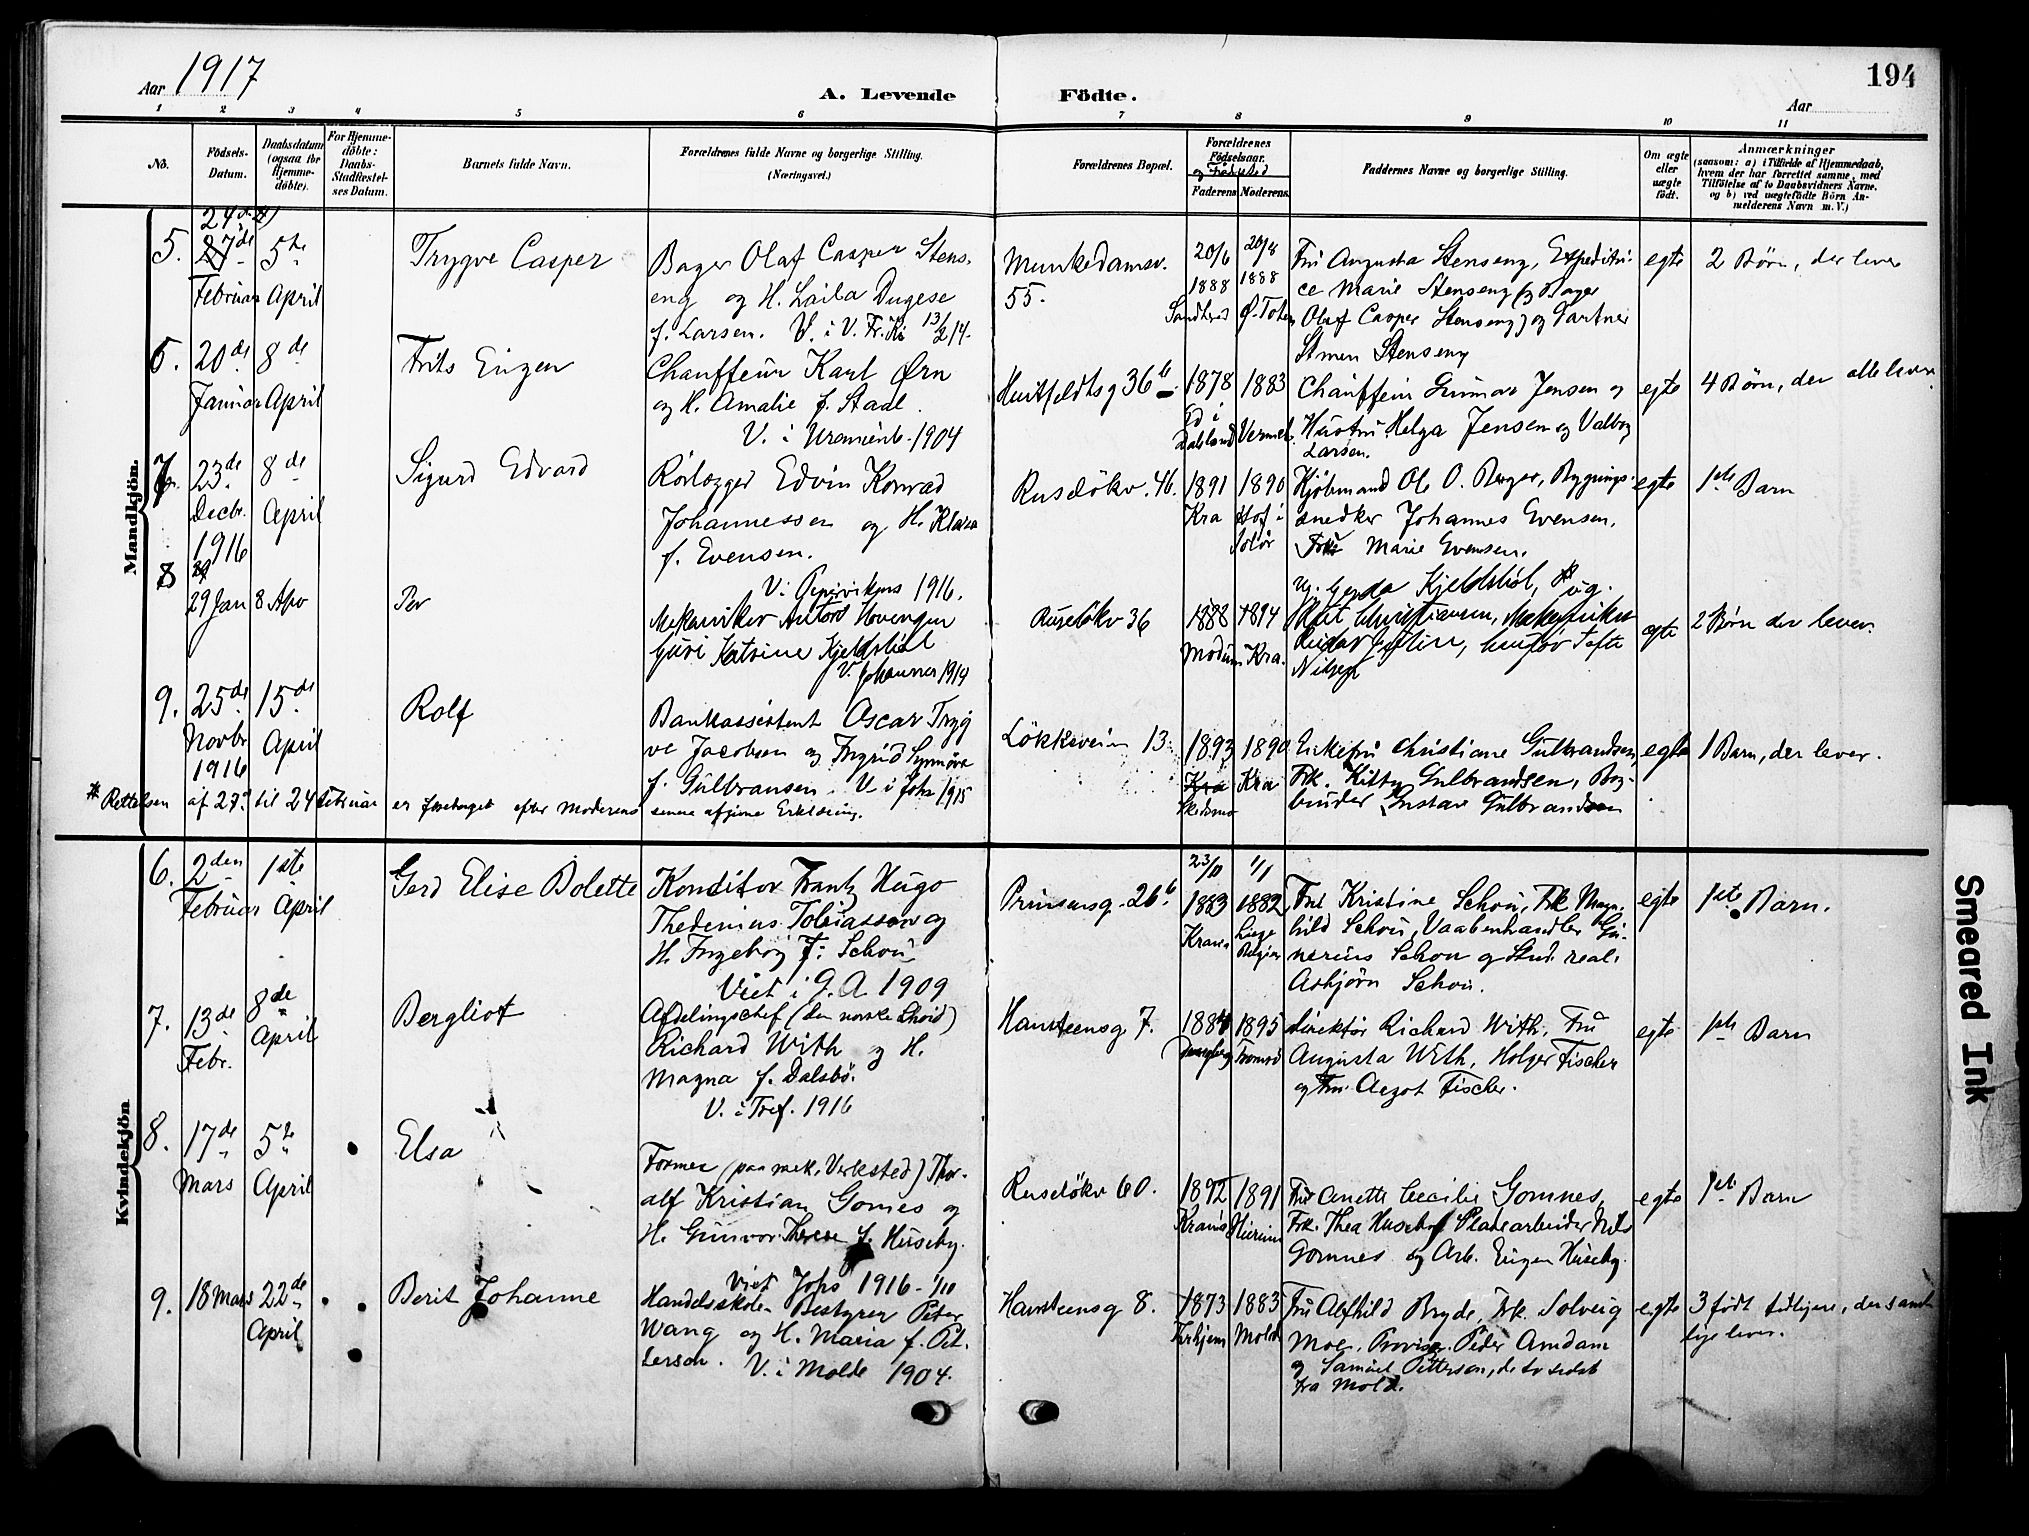 Aar 1917
A. Levende Födte.
Aar
194
1 2 3 4 5 6 7 8 9 10 11
No.
Födsels-Datum.
Daabsdatum (ogsaa for Hjemme-döbte).
For Hjemme-döbte: Daabs-Stadfæstel-ses Datum.
Barnets fulde Navn.
Forældrenes fulde Navne og borgerlige Stilling.
(Næringsvei.)
Forældrenes Bopæl.
Forældrenes Födselsaar. og Födested
Faderens Moderens
Faddernes Navne og borgerlige Stilling.
Om ægte eller uægte födt.
Anmærkninger
(saasom: a) i Tilfælde af Hjemmedaab,
hvem der har forrettet samme, med
Tilföielse af to Daabsvidners Navne,
og b) ved uægtefödte Börn An-
melderens Navn m. V.)
Mandkjön.
5. 24de 27de Februar
5te April
Trygve Casper
Bager Olaf Casper Stens-
eng og H. Laila Dugese
f. Larsen. V. i V. Fr. Ki 13/2 14.
Munkedamsv.
55.
20/6 1888
20/8 1888 Ø. Toten
Fru Augusta Stenseng, Expeditri-
ce Marie Stenseng og Bager
Olaf Casper Stenseng og Gartner
Simen Stenseng
egte
2 Børn, der lever
6. 20de Januar
8de April
Frits Eugen
Chauffeur Karl Ørn
og H. Amalie f. Staal.
V. i Uranienb. 1904
Huitfeldtsg 36b
1878 Ed i Dalsland
1883 Verml.
Chauffeur Gunnar Jensen og
Hustru Helga Jensen og Valborg
Larsen.
egte
4 Børn, der alle lever.
7. 23de Decbr. 1916
8de April
Sigurd Edvard
Rörlægger Edvin Konrad
Johannessen og H. Klara
f. Evensen.
V. i Pipervikens 1916.
Ruselökv. 46.
1891 Kra
1890 Hof i Solör
Kjøbmand Ole O. Berger, Bygnings-
snedker Johannes Evensen,
Marie Evensen.
egte
1ste Barn
8 29 Jan
8 Apr
Per
Mekaniker Anton Hovengen
Guri Katrine Kjeldsböl
V. Johannes 1914
Ruselökv 36
1888 Modum
1894 Kra.
Gerda Kjeldsböl,
Christiansen, Mekaniker
Reidar
Nilsen
egte
2 Børn der lever.
9. 25de Novbr 1916
15de April
Rolf
Bankassistent Oscar Tryg
ve Jacobsen og Ingrid Synnöve
f. Gulbransen. V. i Joha 1915
Lökkeveien 13
1893 Kra Skedsmo
1890 Kra
Enkefru Christiane Gulbrandsen,
Frk. Kitty Gulbrandsen, Bog-
binder Gustav Gulbrandsen
egte
1 Barn, der lever.
* Rettelsen af 27de til 24 Februar er foretaget efter Moderens senere afgivne Erklæring.
Kvindekjön
6. 2den Februar
1ste April
Gerd Elise Bolette
Konditor Frantz Hugo
Thedenius Tobiassen og
H. Ingeborg F. Schou
Viet i G. A. 1909
Prinsensg. 26b.
23/11 1883 Krania
1/1 1882 Liege Belgien
Frk Kristine Schou, Frk. Magn-
hild Schou, Vaabenhandler Gu-
nerius Schou og Stud. real.
Asbjørn Schou.
egte
1ste Barn.
7. 13de Febr.
8de April
Bergliot
Afdelingschef (den norske Lloid)
Richard With og H.
Magna f. Dalsbö.
V. i Tref. 1916
Hansteensg 7.
1884
1895 Tromsö
Direktør Richard With, Fru
Augusta With, Holger Fischer
og Fru Aagot Fischer.
egte
1ste Barn
8. 17de Mars
5te April
Elsa
Former (paa mek. Verksted) Thor-
alf Kristian Gomnes og
H. Gunvor Therese f. Huseby.
Viet Johs 1916 - 1/10
Ruselökv 60.
1892 Krania
1891
Fru Anette Cecilie Gomnes,
Frk. Thea Huseby, Pladearbeider Nils
Gomnes og Arb. Eugen Huseby.
egte
1ste Barn
9. 18 Mars
22de April
Berit Johanne
Handelsskole-Bestyrer Peter
Wang og H. Maria f. Pet-
terson. V. i Molde 1904.
Hansteensg 8.
1873
1883 Molde
Fru Alfhild Bryde, Frk. Solveig
Moe, Provisor Peder Amdam
og Samuel Pettersen, de to sidst
fra Molde.
egte
3 født tidligere, der samt-
lige lever.
Smeared Ink